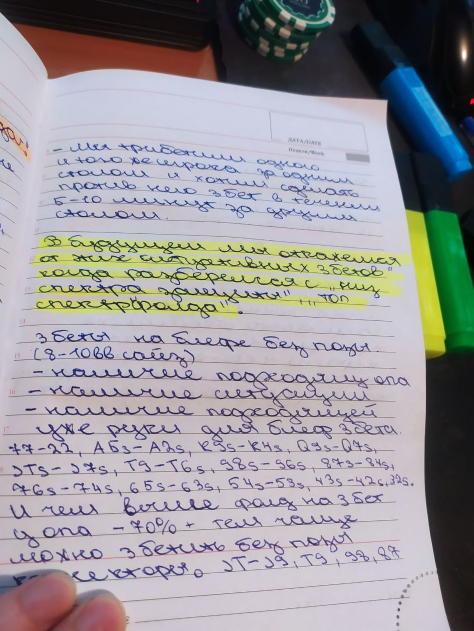 ДАТА/DATE
Неделя/Week
- Мы трибетили одного
и того же игрока за одним
столом и хотим сделать
против него 3бет в течении
5-10 минут за другим
столом.
В будущем мы откажемся
от этих ситуативных 3бетов"
когда разберемся с „низ
спектра защиты", „топ
спектр фолда".
3беты на блефе без позы.
(8-10ВВ сайз)
- наличие подходящ опа
- наличие ситуации
- наличие подходящей
уже руки для блеф 3бета.
77-22, A5s-A2s, K9s-K4s, Q9s-Q7s,
JTs-J7s, T9-T6s, 98s-96s, 87s-84s,
76s-74s, 65s-63s, 54s-53s, 43s-42s, 32s.
И чем выше фолд на 3бет
у опа - 70%+ тем чаще
можно 3бетить без позы
JT-J9, T9, 98, 87